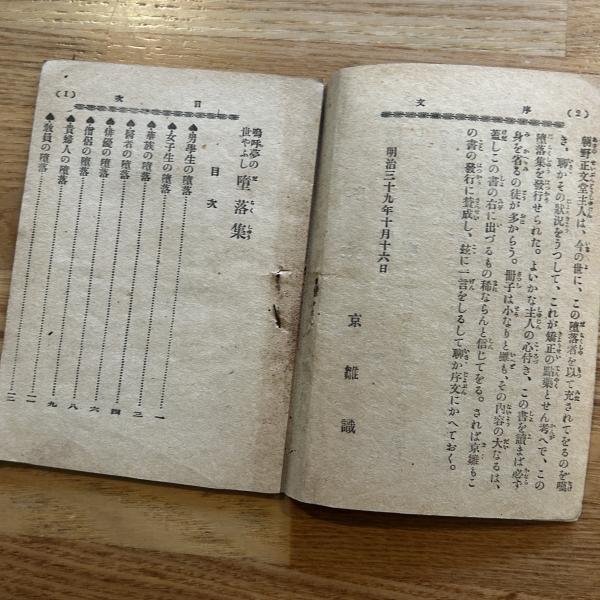 (2)
序文
朝野正文堂主人は、今の世に、この堕落者を以て充されてをるのを嘆
き、聊かその狀況をうつして、これが矯正の點藥とせん考へで、この
堕落集を發行せられた。よいかな主人の心付き、この書を讀まば必ず
身を省るの徒が多からう。冊子は小なりと雖も、その內容の大なるは、
蓋しこの書の右に出づるもの稀ならんと信じてをる。されば京雛もこ
の書の發行に賛成し、玆に一言をしるして聊か序文にかへておく。
明治三十九年十月十六日
京雛識
目次
(1)
嗚呼夢の世やふし 堕落集
目次
♠男學生の堕落……一
♠女子生の堕落……三
♠華族の堕落……四
♠醫者の堕落……六
♠俳優の堕落……八
♠僧侶の堕落……九
♠貴婦人の堕落……一一
♠敎員の堕落……一三